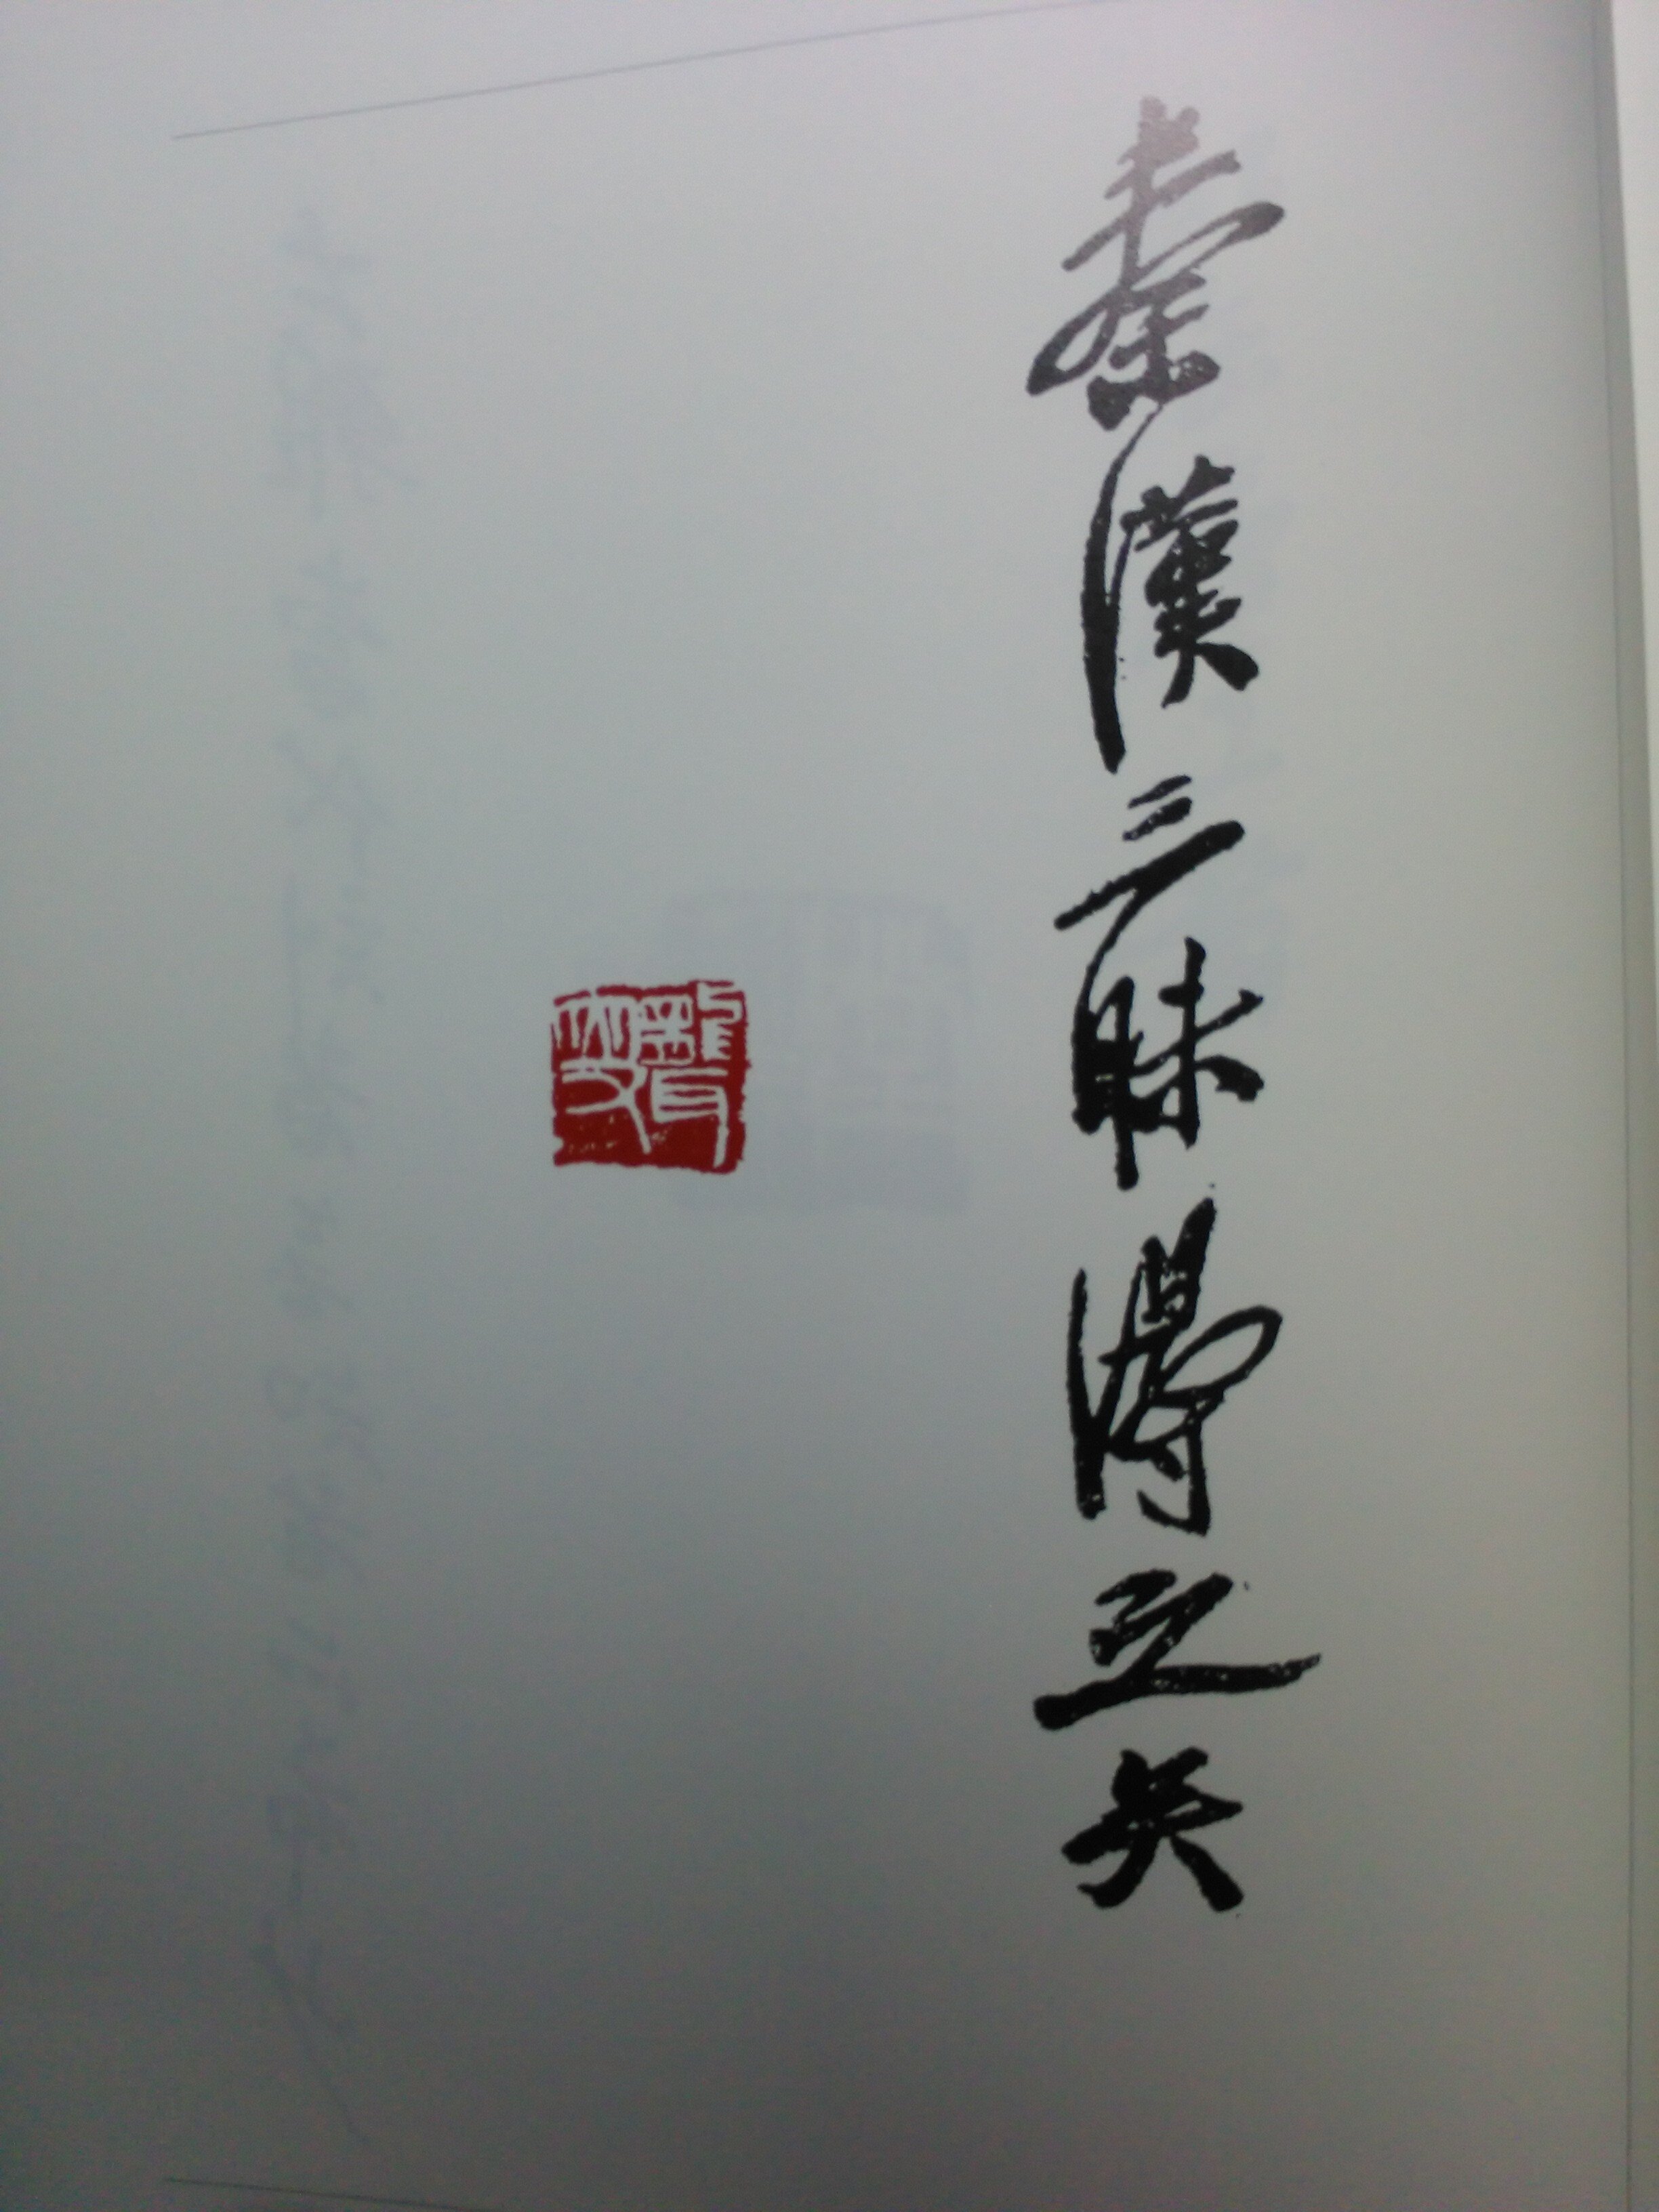 秦漢三昧得之矣